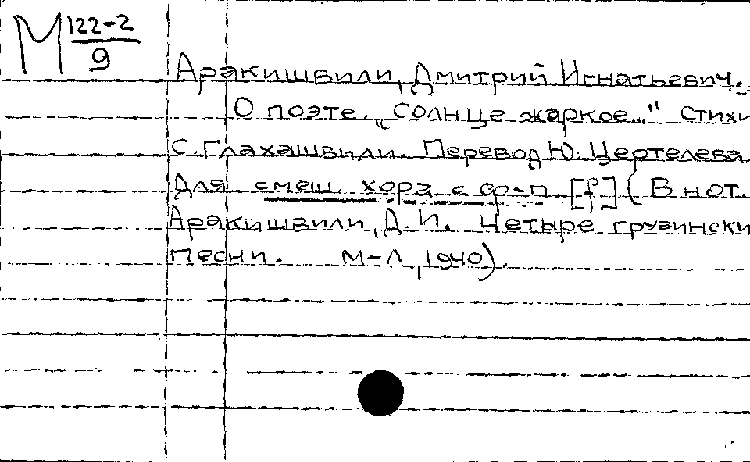 М 122-2
9
Аракишвили, Дмитрий Игнатьевич.
О поэте „Солнце жаркое..." Стихи
С. Глахашвили. Перевод Ю. Цертелева
Для смеш. хора с ф-п [f] (В нот.
Аракишвили, Д. И. Четыре грузински
песни. М-Л, 1940).